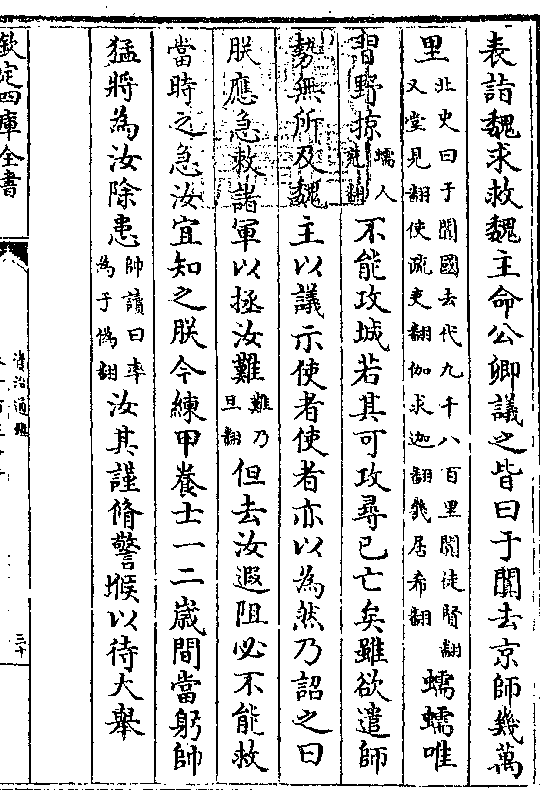 表詣魏求救魏主命公卿議之皆曰于闐去京師幾萬
里北史曰于闐國去代九千八百里闐徒賢翻又堂見翻使疏吏翻伽求迦翻幾居希翻蠕蠕唯
習野掠蠕人兗翻不能攻城若其可攻尋已亡矣雖欲遣師
勢無所及魏主以議示使者使者亦以為然乃詔之曰
朕應急救諸軍以拯汝難難乃旦翻但去汝遐阻必不能救
當時之急汝宜知之朕今練甲養士一二歲間當躬師
猛將為汝除患師讀曰率為于偽翻汝其謹脩警堠以待大舉
欽定四庫全書
資治通鑑
三十